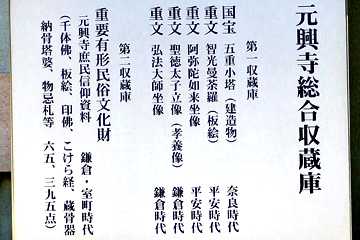 元興寺総合収蔵庫
第一収蔵庫
国宝 五重小塔（建造物） 奈良時代
重文 智光曼荼羅（板絵） 平安時代
重文 阿弥陀如来坐像 平安時代
重文 聖徳太子立像（孝養像） 鎌倉時代
重文 弘法大師坐像 鎌倉時代
第二収蔵庫
重要有形民俗文化財
元興寺庶民信仰資料 鎌倉・室町時代
（千体佛、板絵、印佛、こけら経、蔵骨器
納骨塔婆、物忌札等 六五、三九五点）